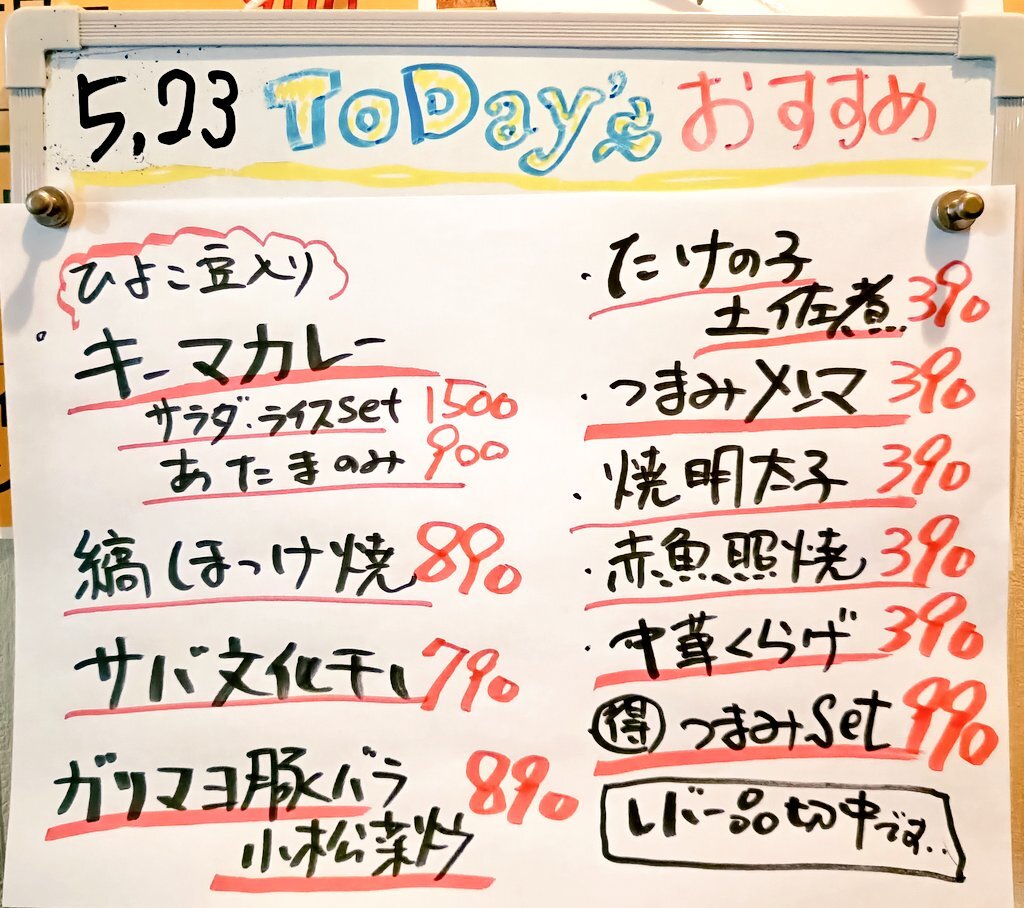 5,23 ToDay's おすすめ
ひよこ豆入り
キーマカレー
サラダ・ライスset 1500
あたまのみ 900
縞ほっけ焼 890
サバ文化干し 790
ガリマヨ豚バラ 890
小松菜炒
・たけの子
土佐煮 390
・つまみメンマ 390
・焼明太子 390
・赤魚照焼 390
・中華くらげ 390
得 つまみset 990
レバー品切中です..